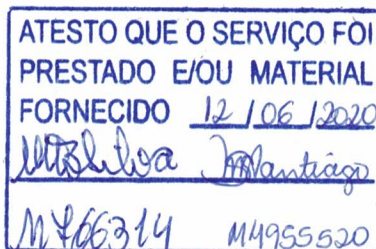 ATESTO QUE O SERVIÇO FOI
PRESTADO E/OU MATERIAL
FORNECIDO 12 / 06 / 2020
M766314 M4955520